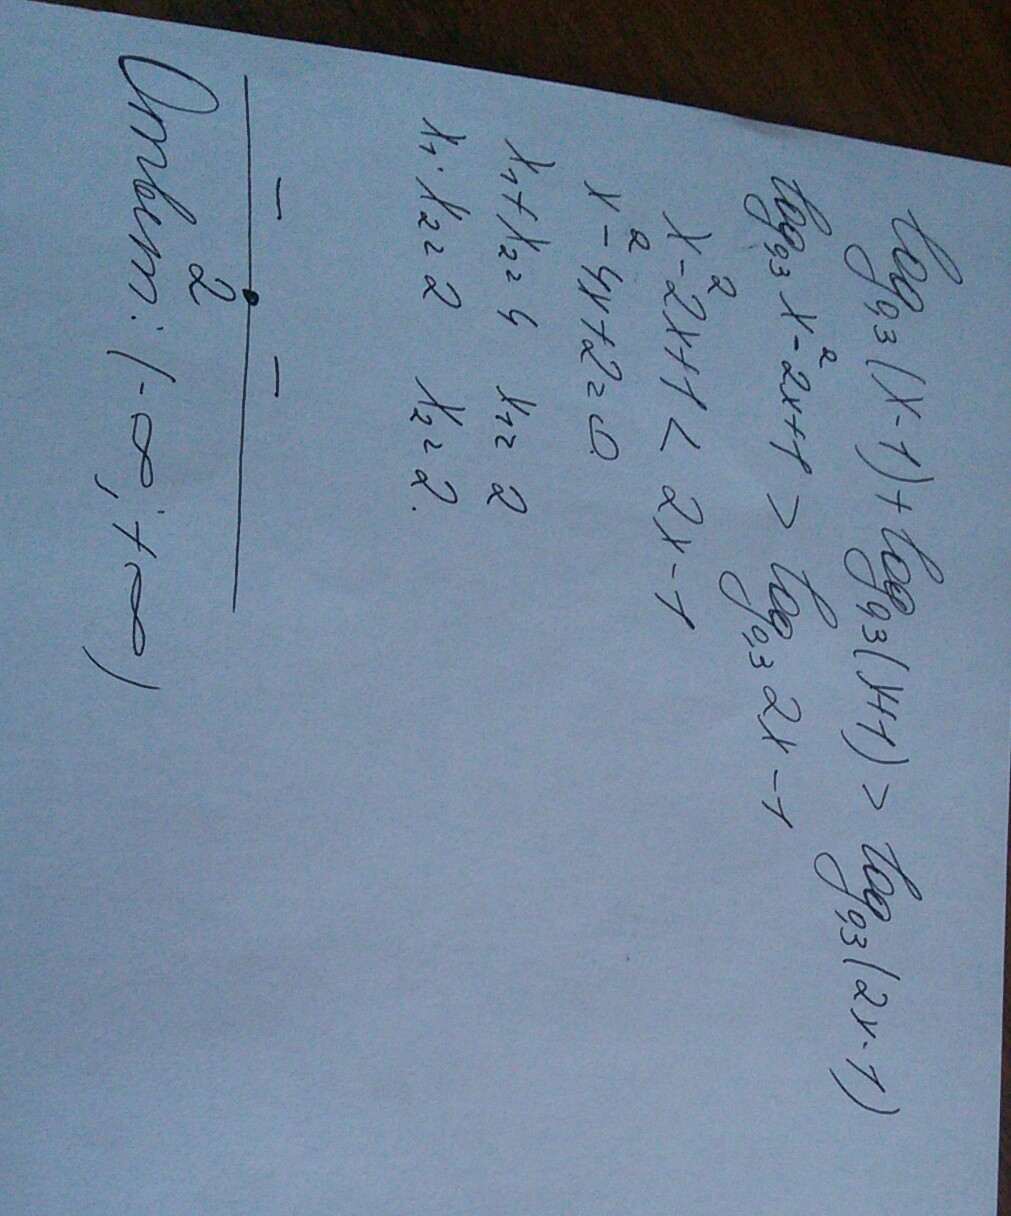 log₀,₃(x-1)+log₀,₃(x+1) > log₀,₃(2x-1)
log₀,₃ x²-2x+1 > log₀,₃ 2x-1
x²-2x+1 < 2x-1
x²-4x+2=0
x₁+x₂=4 x₁=2
x₁·x₂=2 x₂=2.
- -
2
Ответ: (-∞;+∞)